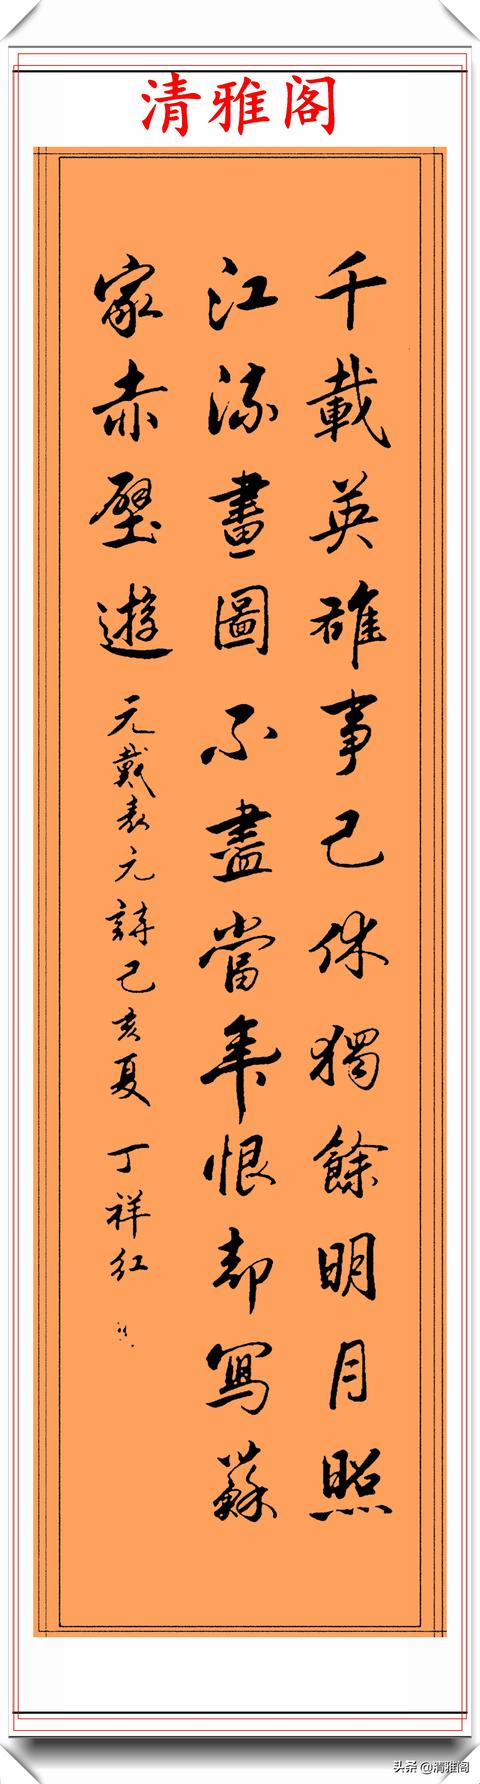 清雅阁
千載英雄事已休獨餘明月照
江流畫圖不盡當年恨却寫蘇
家赤壁遊
元戴表元詩己亥夏 丁祥红
头条 @清雅阁